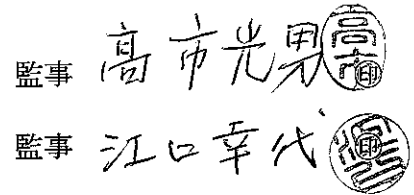 監事 高市光男 ㊞
監事 江口幸代 ㊞